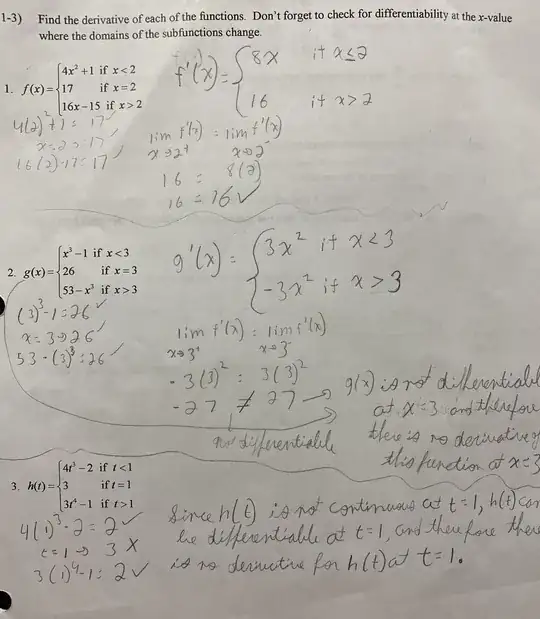 1-3) Find the derivative of each of the functions. Don't forget to check for differentiability at the x-value
where the domains of the subfunctions change.
1. f(x) = { 4x² + 1 if x < 2
17 if x = 2
16x − 15 if x > 2
f'(x) = { 8x if x ≤ 2
16 if x > 2
4(2)² + 1 = 17 ✓
x = 2 → 17 ✓
16(2) - 17 = 17 ✓
lim f'(x) = lim f'(x)
x→2⁺ x→2⁻
16 = 8(2)
16 = 16 ✓
2. g(x) = { x³ − 1 if x < 3
26 if x = 3
53 − x³ if x > 3
g'(x) = { 3x² if x < 3
-3x² if x > 3
(3)³ - 1 = 26 ✓
x = 3 → 26 ✓
53 - (3)³ = 26 ✓
lim f'(x) = lim f'(x)
x→3⁺ x→3⁻
-3(3)² = 3(3)²
-27 ≠ 27 →
not differentiable
g(x) is not differentiabl
at x = 3 and therefore
there is no derivative of
this function at x = 3
3. h(t) = { 4t³ − 2 if t < 1
3 if t = 1
3t⁴ − 1 if t > 1
4(1)³ - 2 = 2 ✓
t = 1 → 3 X
3(1)⁴ - 1 = 2 ✓
Since h(t) is not continuous at t = 1, h(t) can
be differentiable at t = 1, and therefore there
is no derivative for h(t) at t = 1.